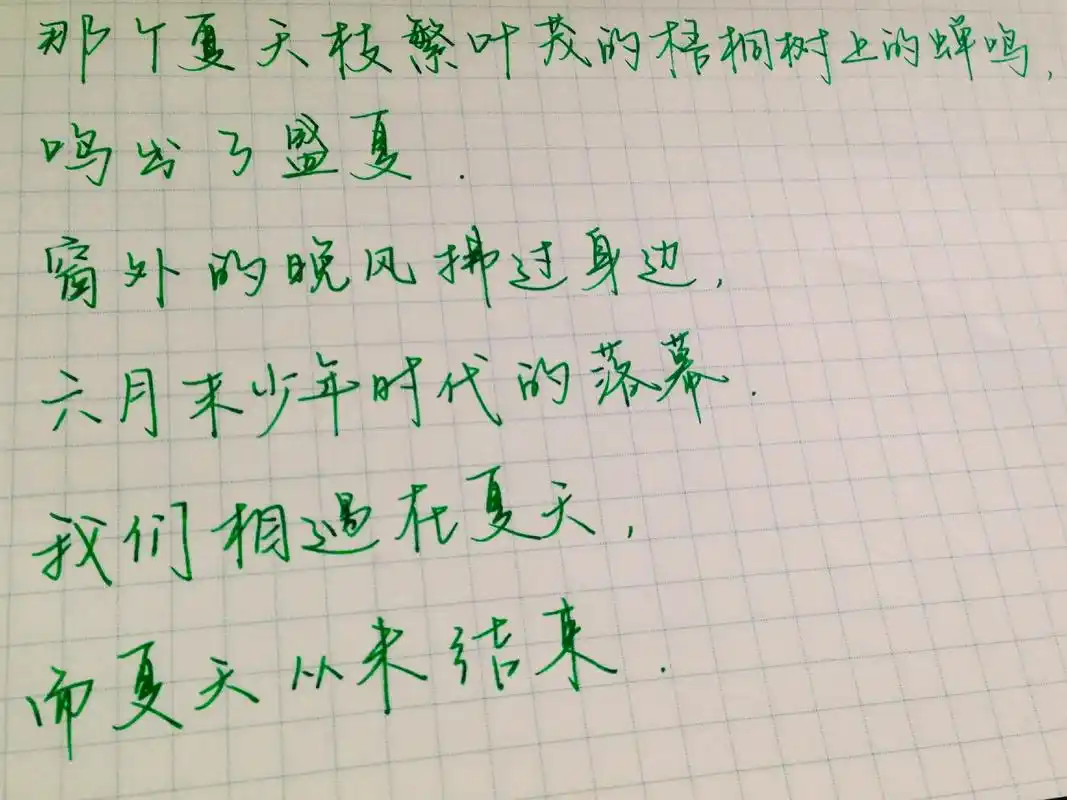 那个夏天枝繁叶茂的梧桐树上的蝉鸣,
鸣出了盛夏.
窗外的晚风拂过身边,
六月末少年时代的落幕.
我们相遇在夏天,
而夏天从未结束.